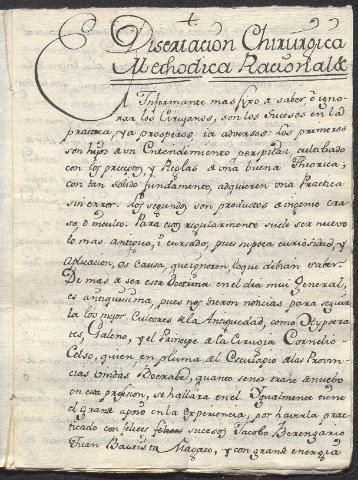 Disertacion Chirurgica
Methodica Racional &
El Informante mas fixo a saber, ô igno-
rar los Cirujanos, son los Sucesos en la
practica, ya prosperos, ia adversos: Los primeros
son hijos de vn Entendimiento perspicaz cultibado
con los preceptos, y Reglas de vna buena Theorica;
con tan solido fundamento, adquieren vna Practica
sin error. Los segundos son productos de ingenio cra-
so, ô inculto. Para estos regularmente suele ser nuevo
lo mas antiguo, i cursado, pues su poca curiosidad, y
aplicacion, es causa, que ignoren, lo que debian saber.
De mas de ser esta Doctrina en el dia mui General,
es antiquissima, pues nos dieron noticias para seguir-
la los mejores Cultores de la Antiguedad, como Hypocra-
tes, Galeno, y el Principe de la Cirugia Cornelio
Celso, quien en pluma del Esculapio de las Provin-
cias Vnidas Boerabe, quanto se nos trahe de nuebo
en esta profesion, se hallara en el. Ygualmente tiene
el grande apoio en la Experiencia, por haverla prac-
ticado con felices sucesos Jacobo Berengario
Juan Bautista Magaco, y con grande energia